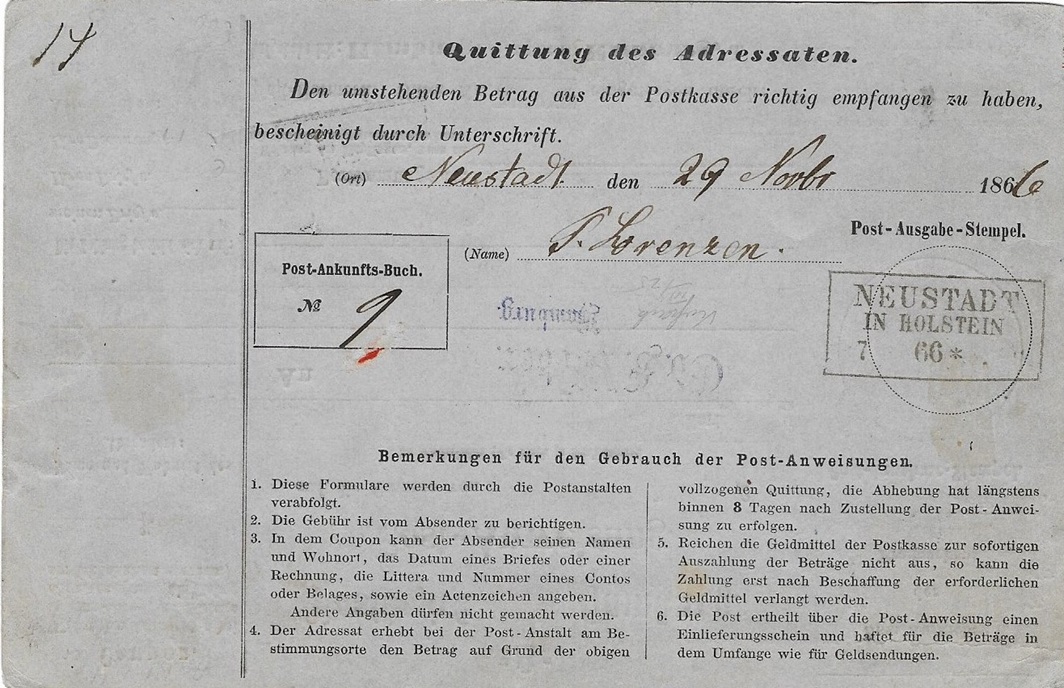 14
Quittung des Adressaten.
Den umstehenden Betrag aus der Postkasse richtig empfangen zu haben,
bescheinigt durch Unterschrift.
(Ort) Neustadt den 29 Novbr 1866
Post-Ausgabe-Stempel.
(Name) P. Lorenzen.
Post-Ankunfts-Buch.
№ 9
Hamburg
NEUSTADT
IN HOLSTEIN
7 66 *
Bemerkungen für den Gebrauch der Post-Anweisungen.
1. Diese Formulare werden durch die Postanstalten
verabfolgt.
2. Die Gebühr ist vom Absender zu berichtigen.
3. In dem Coupon kann der Absender seinen Namen
und Wohnort, das Datum eines Briefes oder einer
Rechnung, die Littera und Nummer eines Contos
oder Belages, sowie ein Actenzeichen angeben.
Andere Angaben dürfen nicht gemacht werden.
4. Der Adressat erhebt bei der Post-Anstalt am Be-
stimmungsorte den Betrag auf Grund der obigen
vollzogenen Quittung, die Abhebung hat längstens
binnen 8 Tagen nach Zustellung der Post-Anwei-
sung zu erfolgen.
5. Reichen die Geldmittel der Postkasse zur sofortigen
Auszahlung der Beträge nicht aus, so kann die
Zahlung erst nach Beschaffung der erforderlichen
Geldmittel verlangt werden.
6. Die Post ertheilt über die Post-Anweisung einen
Einlieferungsschein und haftet für die Beträge in
dem Umfange wie für Geldsendungen.